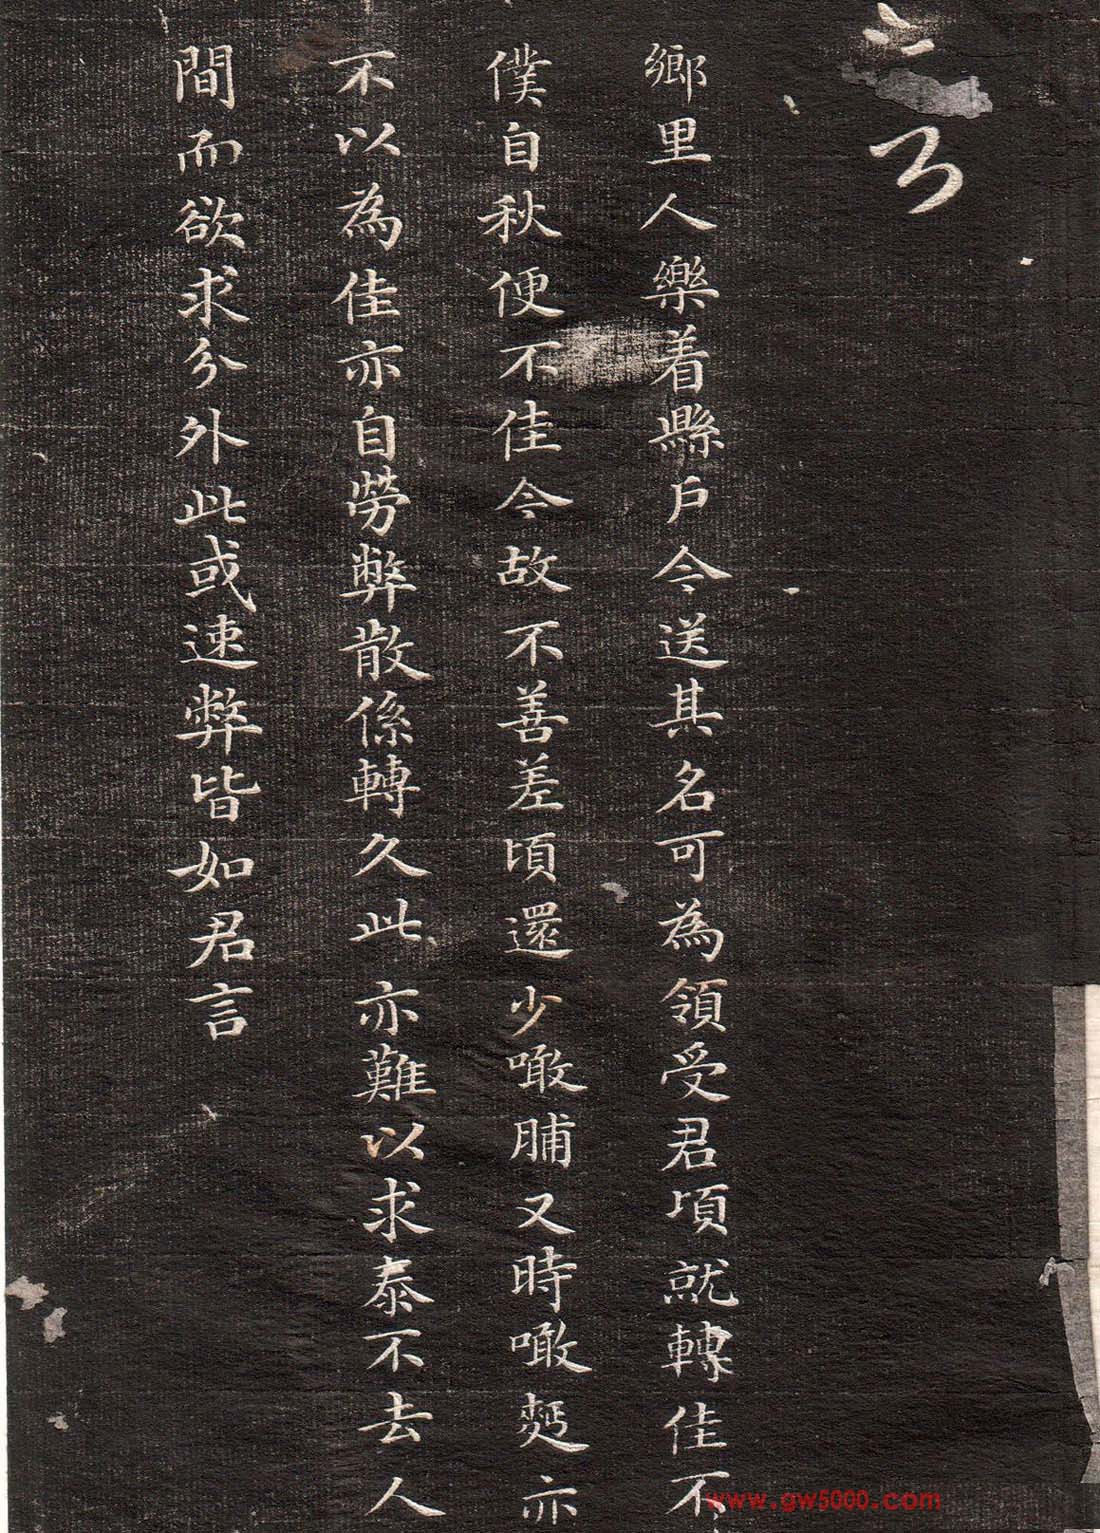 鄉里人樂着縣戶今送其名可為領受君頃就轉佳不
僕自秋便不佳今故不善差頃還少噉脯又時噉麪亦
不以為佳亦自勞弊散係轉久此亦難以求泰不去人
間而欲求分外此或速弊皆如君言
www.gw5000.com